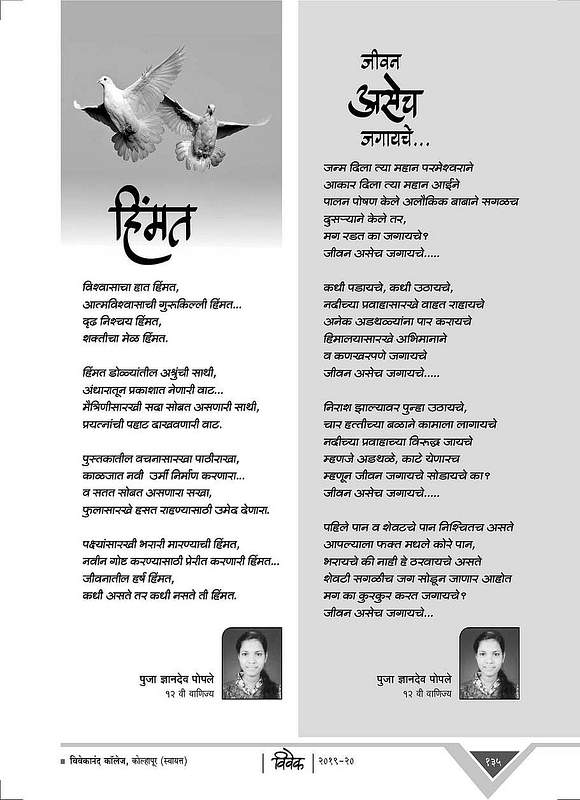 हिंमत
विश्वासाचा हात हिंमत,
आत्मविश्वासाची गुरूकिल्ली हिंमत...
दृढ निश्चय हिंमत,
शक्तीचा मेळ हिंमत.
हिंमत डोळ्यांतील अश्रुंची साथी,
अंधारातून प्रकाशात नेणारी वाट...
मैत्रिणीसारखी सदा सोबत असणारी साथी,
प्रयत्नांची पहाट दाखवणारी वाट.
पुस्तकातील वचनासारखा पाठीराखा,
काळजात नवी उर्मी निर्माण करणारा...
व सतत सोबत असणारा सखा,
फुलासारखे हसत राहण्यासाठी उमेद देणारा.
पक्ष्यांसारखी भरारी मारण्याची हिंमत,
नवीन गोष्ट करण्यासाठी प्रेरीत करणारी हिंमत...
जीवनातील हर्ष हिंमत,
कधी असते तर कधी नसते ती हिंमत.
पुजा ज्ञानदेव पोपले
१२ वी वाणिज्य
जीवन
असेच
जगायचे...
जन्म दिला त्या महान परमेश्वराने
आकार दिला त्या महान आईने
पालन पोषण केले अलौकिक बाबाने सगळच
दुसऱ्याने केले तर,
मग रडत का जगायचे?
जीवन असेच जगायचे.....
कधी पडायचे, कधी उठायचे,
नदीच्या प्रवाहासारखे वाहत राहायचे
अनेक अडथळ्यांना पार करायचे
हिमालयासारखे अभिमानाने
व कणखरपणे जगायचे
जीवन असेच जगायचे.....
निराश झाल्यावर पुन्हा उठायचे,
चार हत्तीच्या बळाने कामाला लागायचे
नदीच्या प्रवाहाच्या विरूद्ध जायचे
म्हणजे अडथळे, काटे येणारच
म्हणून जीवन जगायचे सोडायचे का?
जीवन असेच जगायचे.....
पहिले पान व शेवटचे पान निश्चितच असते
आपल्याला फक्त मधले कोरे पान,
भरायचे की नाही हे ठरवायचे असते
शेवटी सगळीच जग सोडून जाणार आहोत
मग का कुरकुर करत जगायचे?
जीवन असेच जगायचे...
पुजा ज्ञानदेव पोपले
१२ वी वाणिज्य
विवेकानंद कॉलेज, कोल्हापूर (स्वायत्त)
विवेक
२०१९-२०
१३५